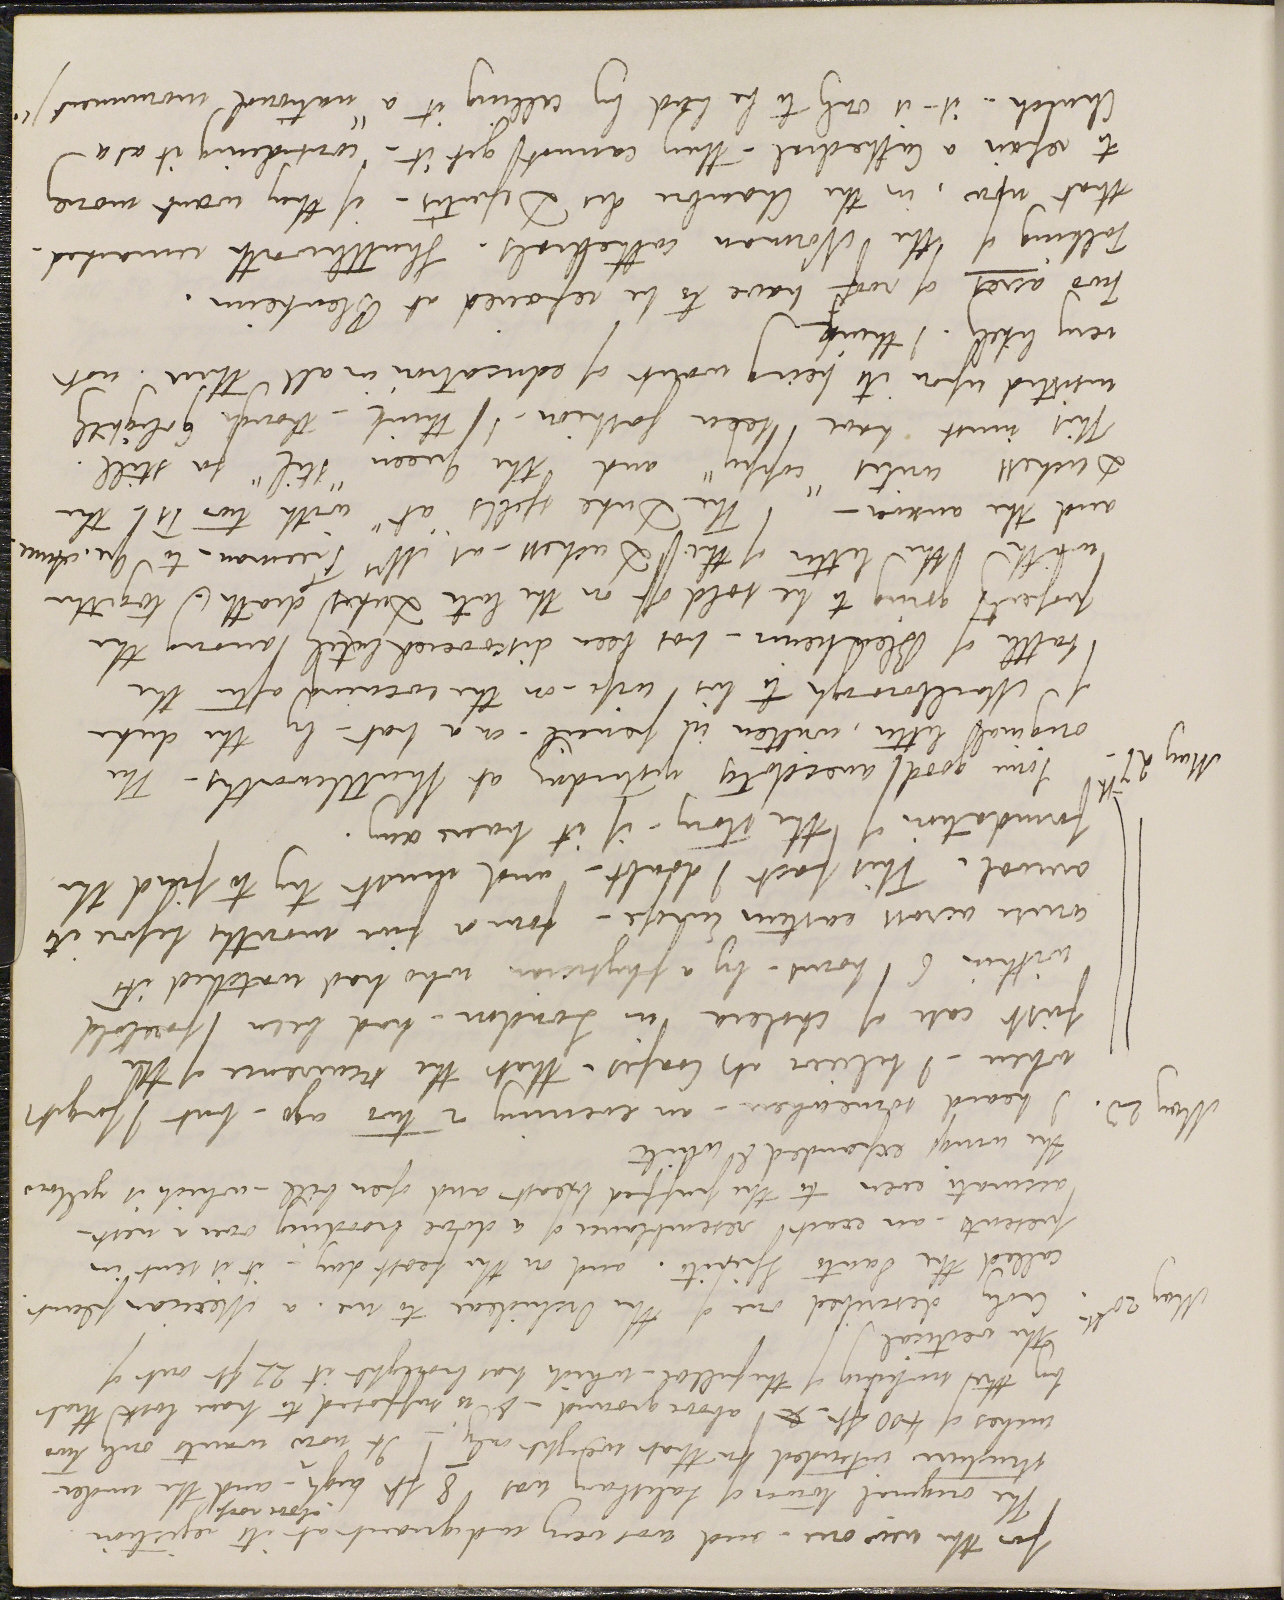 for the new one - and was very indignant at its rejection.
The original tower of Salisbury was 8 ft high above roof - and the under-
structure intended for that weight only - It now wants only two
inches of 400 ft - above ground - & is supposed to have lost that
by the sinking of the pillar - which has brought it 22 ft out of
the vertical
May 20th. Croly described one of the Orchideae to me. a Mexican plant.
called the Santo Spirito. and on the feast day - it is sent in
presents - an exact resemblance of a dove brooding over a nest -
accurate even to the puffed breast and open bill - which is yellow
the wings expanded & white
May 23. I heard somewhere - an evening or two ago - but I forget
where - I believe at Coapes - that the occurrence of the
first case of cholera in London - had been foretold
within 6 hours - by a physician who had watched its
course across eastern Europe - four or five months before its
arrival. This fact I doubt - and must try to find the
foundation of the story - if it have any.
May 27th - Some good anecdotes yesterday at Shuttleworths - The
original letter, written in pencil - on a hat - by the duke
of Marlborough to his wife - on the evening after the
battle of Blenheim - has been discovered lately among the
property going to be sold off on the late Dukes death - together
with the letter of the Duchess - as Mrs Freeman - to Qu. Anne -
and the answer - The Duke spells "at" with two Ts - the
Duchess writes "coppy" and the Queen "stil" for still.
This must have been fashion - I think - though Golightly
insisted upon its being want of education in all three. not
very likely. I think
Two acres of roof have to be repaired at Blenheim.
Talking of the Norman cathedrals. Shuttleworth remarked -
that now, in the Chambre des Deputés - if they want money
to repair a Cathedral - they cannot get it - considering it as a
Church - it is only to be had by calling it a "national monument!"